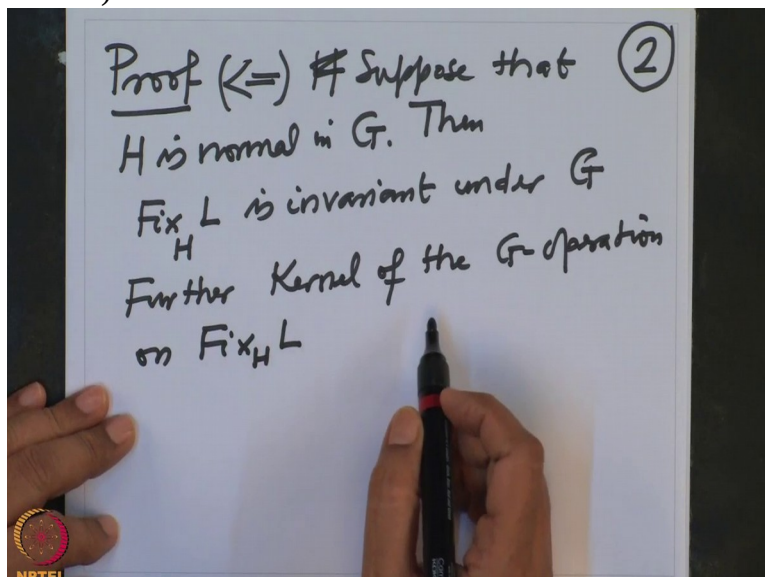 Proof (<=) Suppose that
②
H is normal in G. Then
Fix_H L is invariant under G
Further Kernel of the G-operation
on Fix_H L
NPTEL